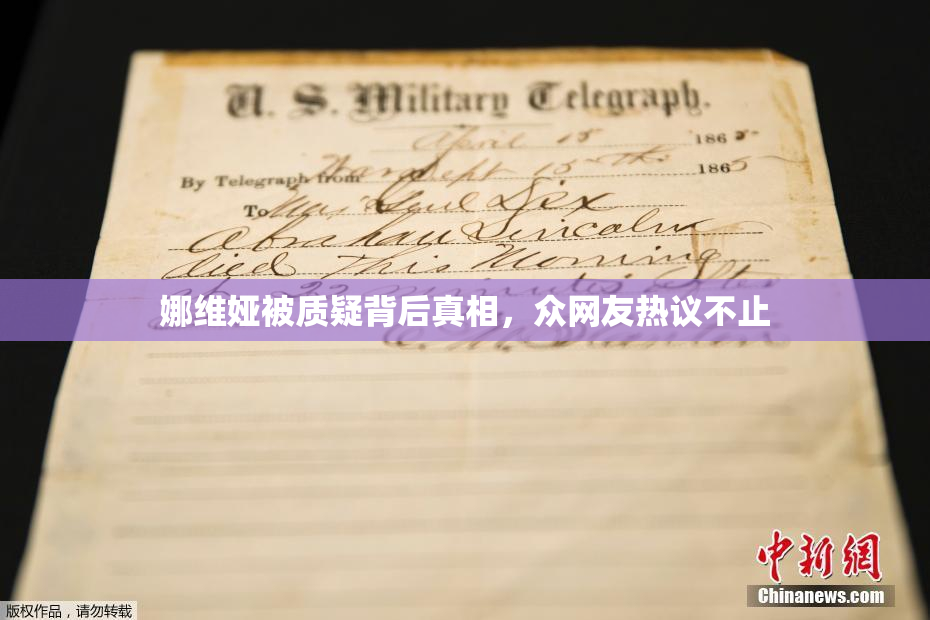 U. S. Military Telegraph.
April 15 1865-
By Telegraph from War Dept 15 th 1865
To Maj Genl Dix
Abraham Lincoln
died This Morning
at 22 minutes after
娜维娅被质疑背后真相，众网友热议不止
E. M. Stanton
中新网
Chinanews.com
版权作品，请勿转载